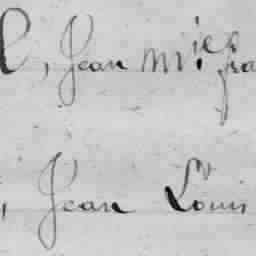 , Jean M.ie fra
, Jean Louis